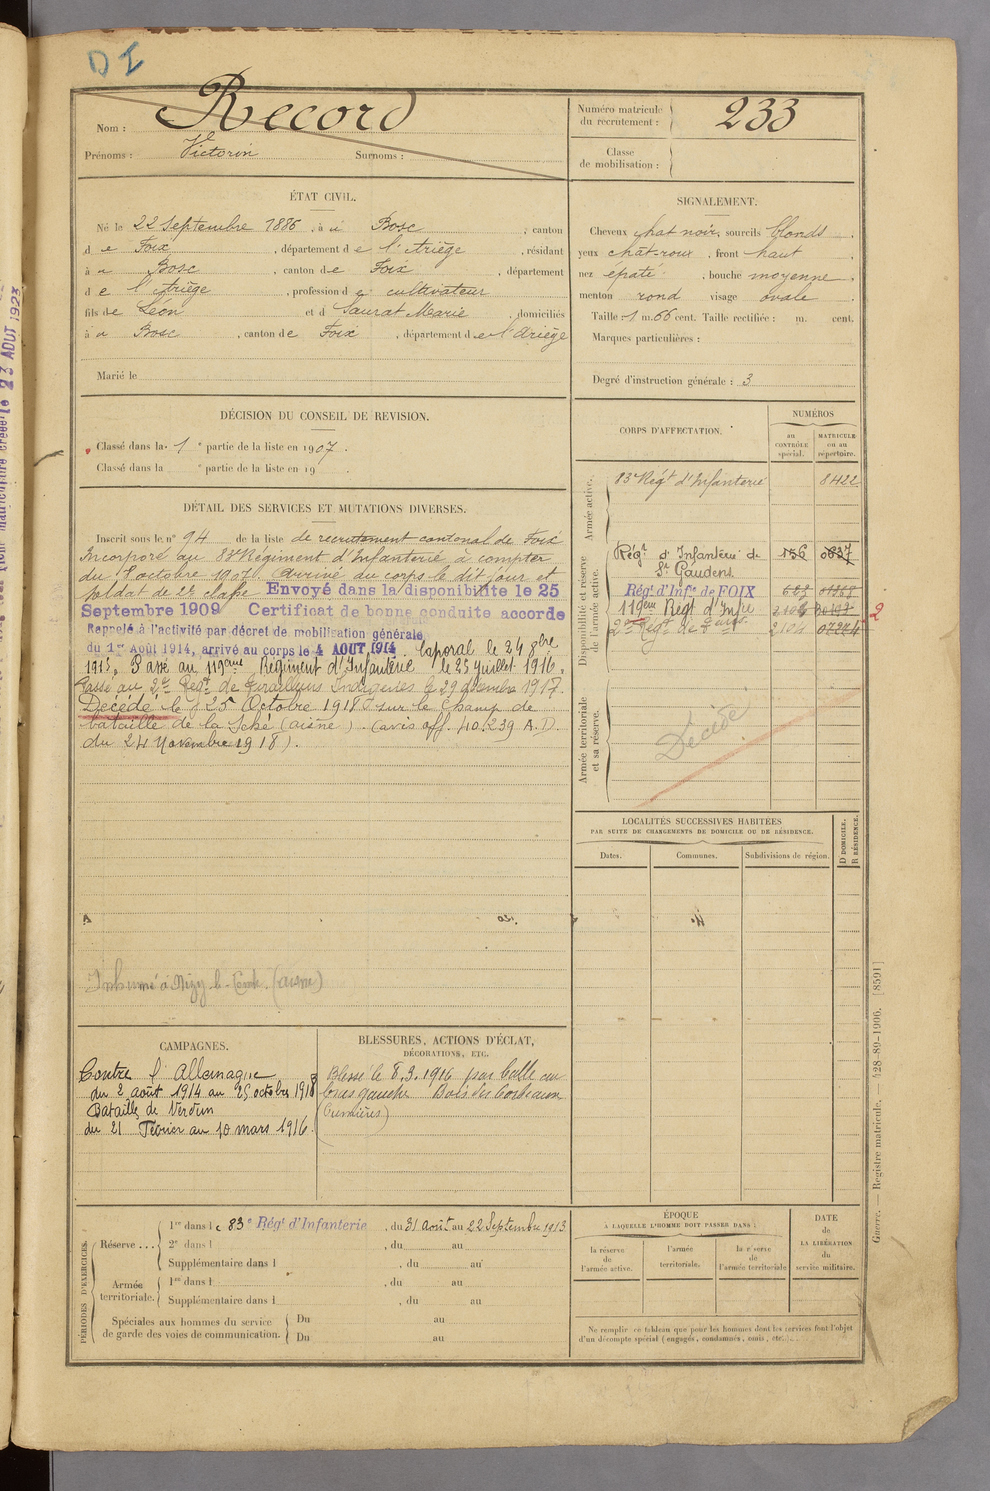 D I
Nom : Record
Prénoms : Victorin Surnoms :
Numéro matricule du recrutement : 233
Classe de mobilisation :
ÉTAT CIVIL.
Né le 22 Septembre 1886, à Bosc, canton
de Foix, département de l'Ariège, résidant
à Bosc, canton de Foix, département
de l'Ariège, profession de cultivateur
fils de Léon et d Saurat Marie, domiciliés
à Bosc, canton de Foix, département de l'Ariège
Marié le
SIGNALEMENT.
Cheveux chat noir, sourcils blonds.
yeux chat-roux, front haut
nez épaté, bouche moyenne.
menton rond visage ovale.
Taille 1 m. 66 cent. Taille rectifiée : m. cent.
Marques particulières :
Degré d'instruction générale : 3
DÉCISION DU CONSEIL DE REVISION.
Classé dans la 1e partie de la liste en 1907.
Classé dans la e partie de la liste en 19 .
DÉTAIL DES SERVICES ET MUTATIONS DIVERSES.
Inscrit sous le n° 94 de la liste de recrutement cantonal de Foix
Incorporé au 83e Régiment d'Infanterie à compter
du 8 octobre 1907. Arrivé au corps le dit jour et
soldat de 2e classe Envoyé dans la disponibilité le 25
Septembre 1909 Certificat de bonne conduite accordé
Rappelé à l'activité par décret de mobilisation générale
du 1er Août 1914, arrivé au corps le 4 AOUT 1914 Caporal le 24 8bre
1915. Passé au 119ème Régiment d'Infanterie le 25 juillet 1916.
Passé au 2e Régt de Tirailleurs Indigènes le 29 décembre 1917.
Décédé le 25 Octobre 1918 sur le Champ de
bataille de la (aisne). (avis off. 40.239 A.D.
du 24 Novembre 1918).
Inhumé à Nizy-le-Comte (aisne)
CORPS D'AFFECTATION.
NUMÉROS
au CONTRÔLE spécial.
MATRICULE ou au répertoire.
Armée active.
83e Régt d'Infanterie 8422
Disponibilité et réserve de l'armée active.
Régt d'Infanterie de 156 0637
St Gaudens
Régt d'Infie de FOIX 603
119ème Régt d'Infie
2e Régt de 2104
2
Armée territoriale et sa réserve.
Décédé
LOCALITÉS SUCCESSIVES HABITÉES
PAR SUITE DE CHANGEMENTS DE DOMICILE OU DE RÉSIDENCE.
Dates. Communes. Subdivisions de région.
D DOMICILE. R RÉSIDENCE.
CAMPAGNES.
Contre l'Allemagne
du 2 août 1914 au 25 octobre 1918
Bataille de Verdun
du 21 Février au 10 mars 1916.
BLESSURES, ACTIONS D'ÉCLAT,
DÉCORATIONS, ETC.
Blessé le 8.3.1916 par balle au
bras gauche Bois des Corbeaux
(Cumières)
PÉRIODES D'EXERCICES.
Réserve ...
1re dans le 83e Régt d'Infanterie, du 31 Août au 22 Septembre 1913
2e dans l , du au
Supplémentaire dans l , du au
Armée territoriale.
1re dans l , du au
Supplémentaire dans l , du au
Spéciales aux hommes du service de garde des voies de communication.
Du au
Du au
ÉPOQUE
À LAQUELLE L'HOMME DOIT PASSER DANS :
la réserve de l'armée active.
l'armée territoriale.
la réserve de l'armée territoriale
DATE DE LA LIBÉRATION du service militaire.
Ne remplir ce tableau que pour les hommes dont les services font l'objet
d'un décompte spécial (engagés, condamnés, omis, etc.
Guerre. — Registre matricule. — 428-89-1906. [8591]
matriculaire créée le 23 AOUT 1923